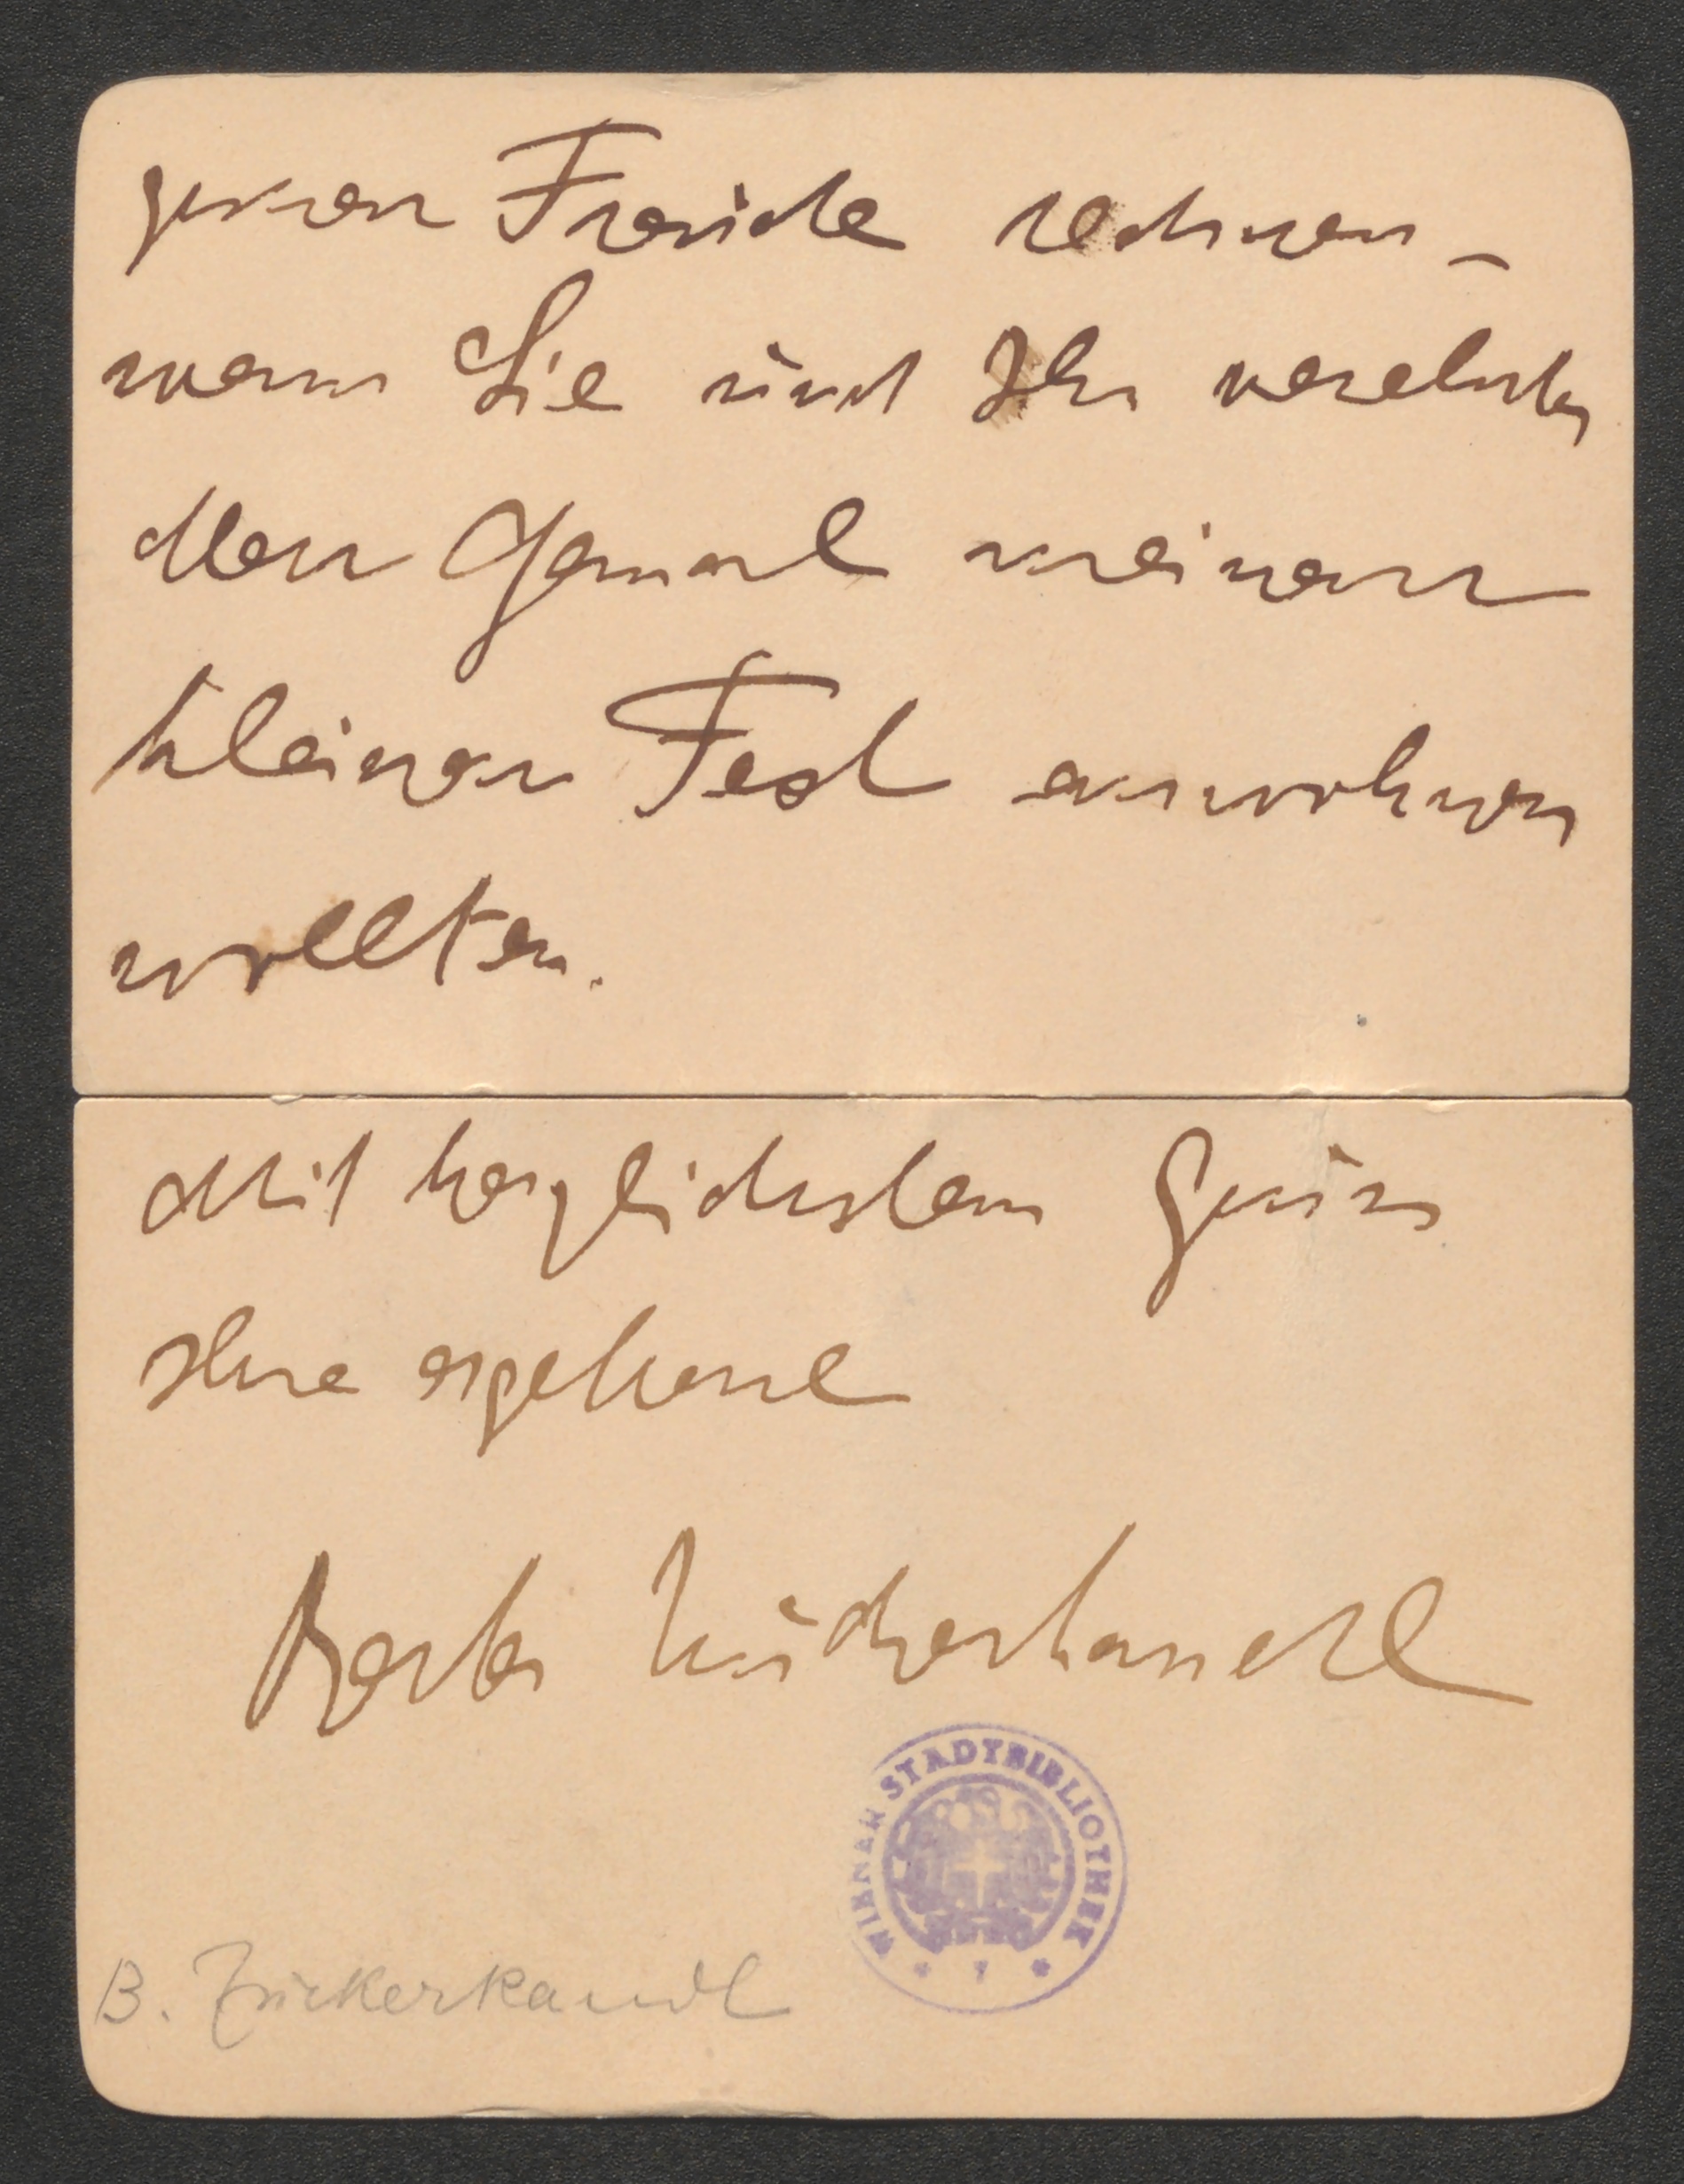 grossen Freude rechnen –
wenn Sie und Ihr verehrter
Herr Gemal meinem
kleinen Fest anwohnen
wollten.
Mit herzlichstem Gruss
Ihre ergebene
Berta Zuckerkandl
WIENER STADTBIBLIOTHEK
B. Zuckerkandl